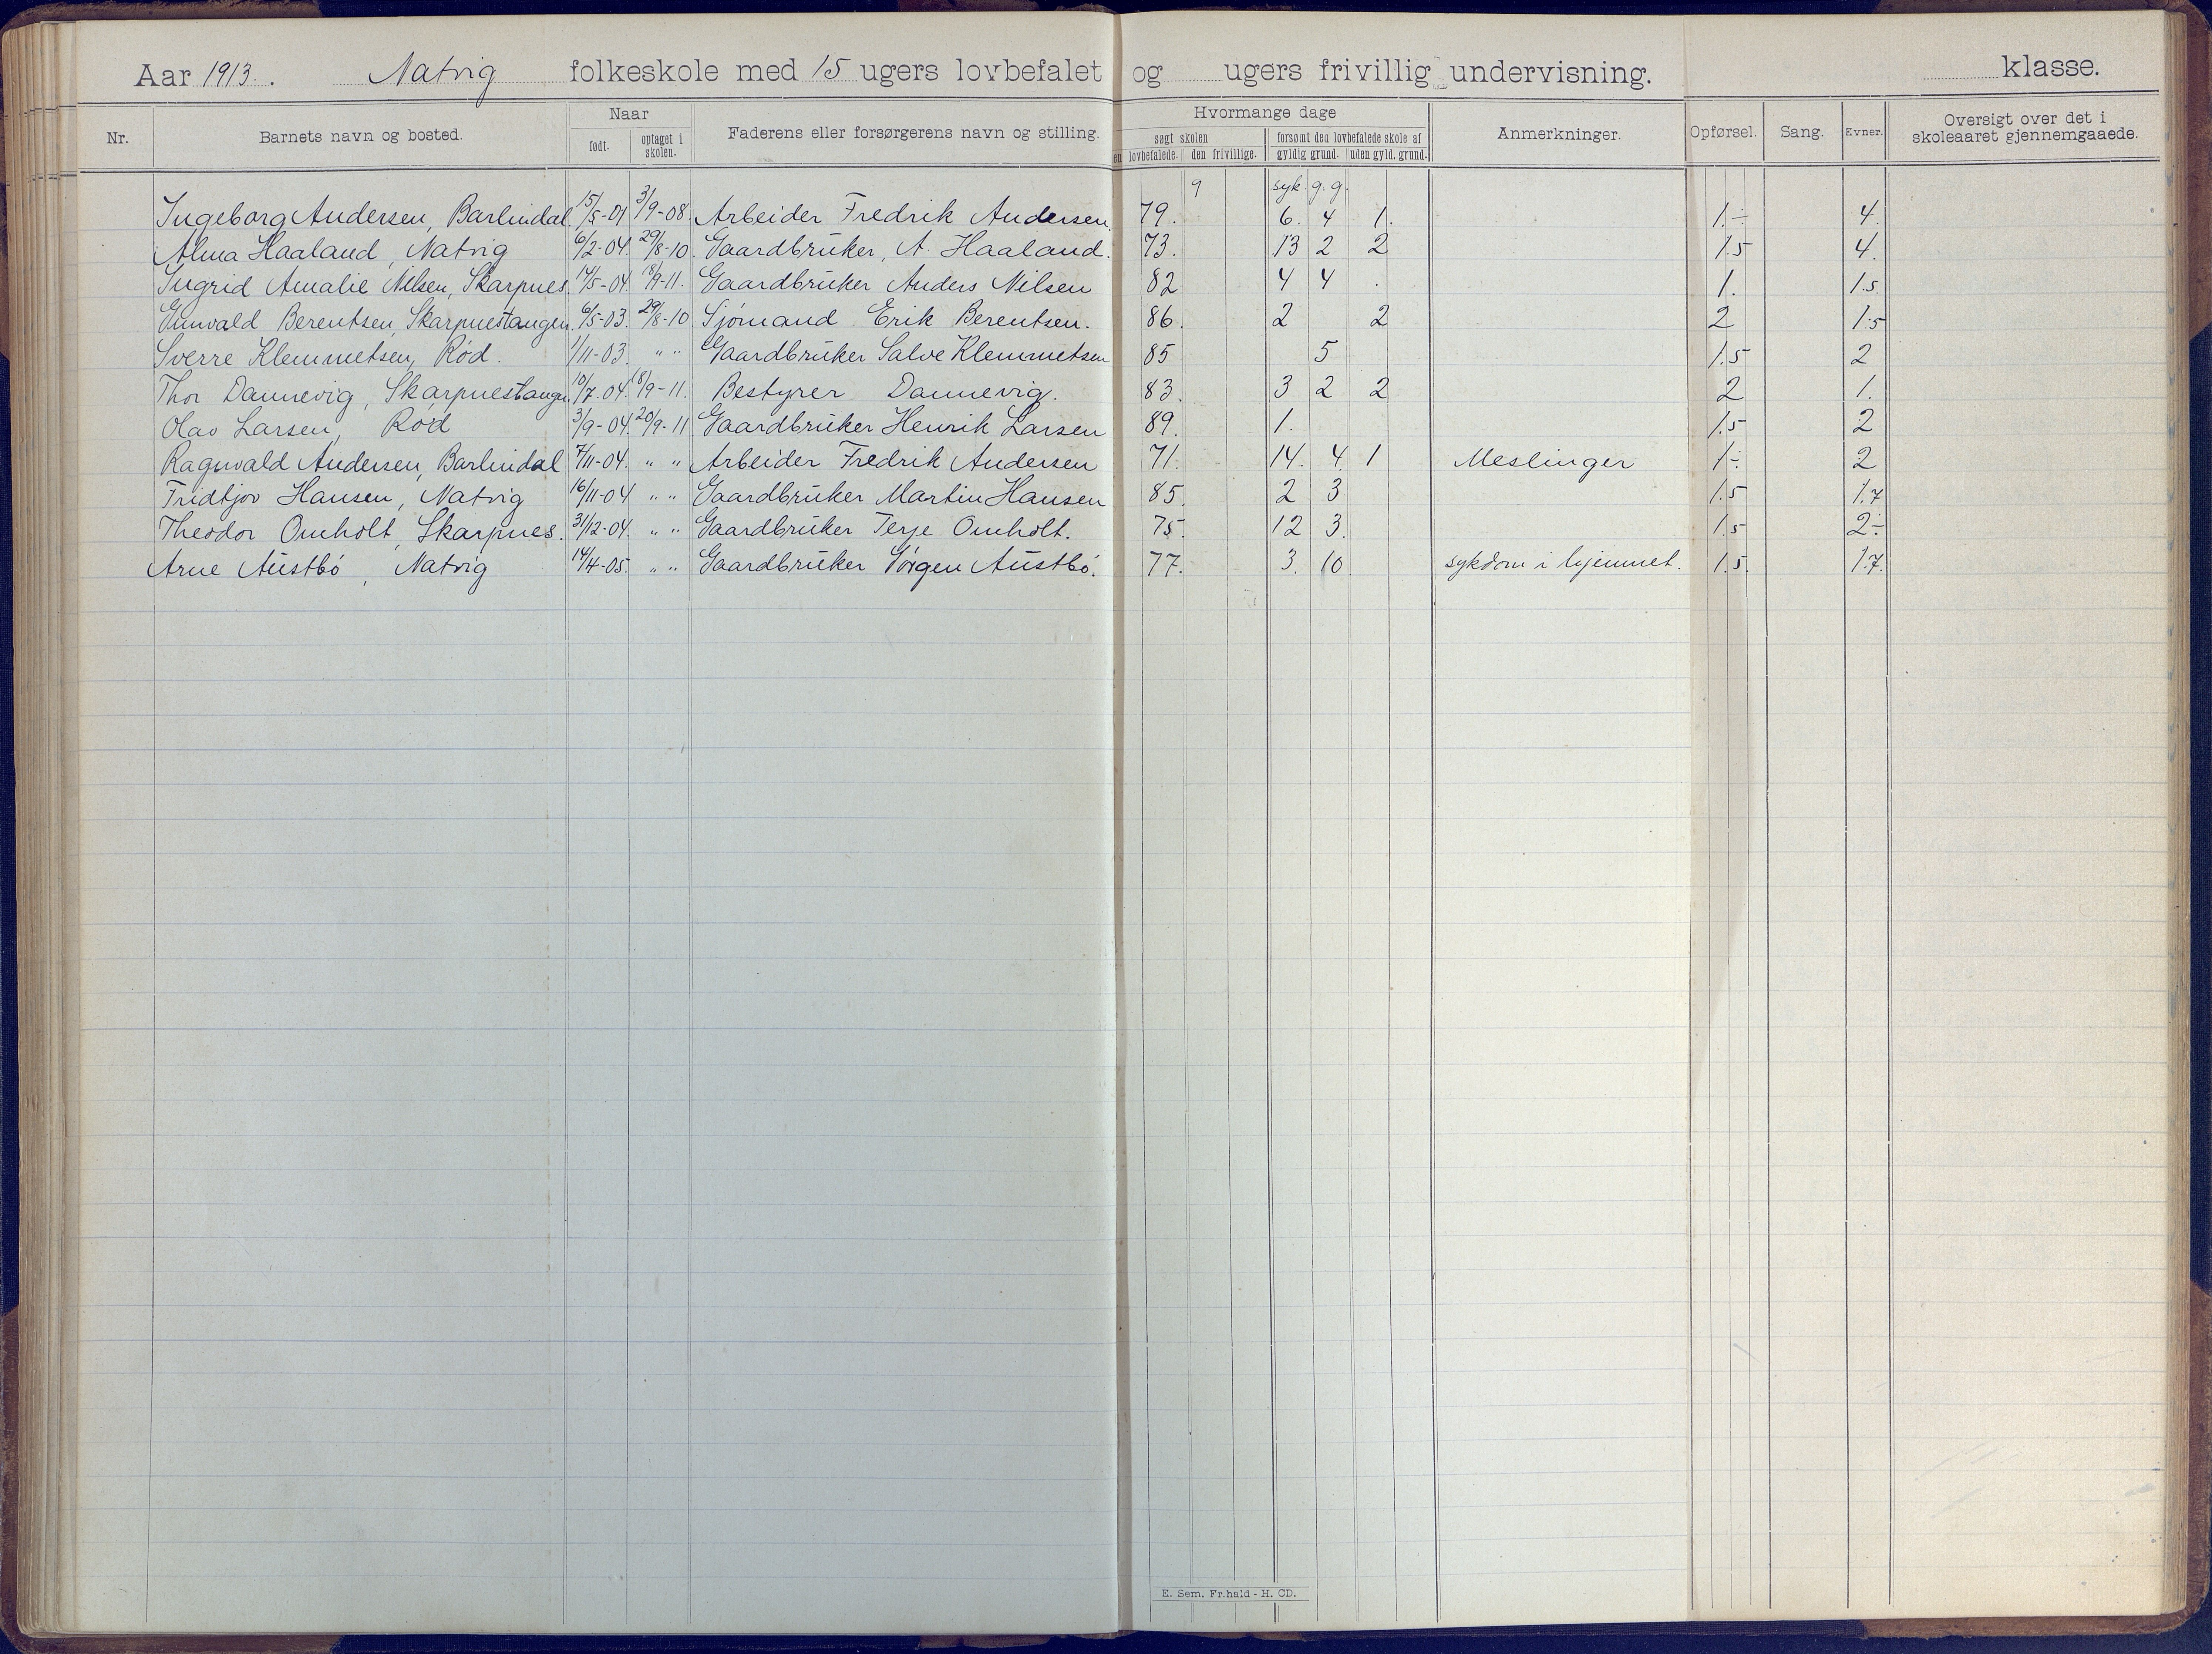 Aar 1913. Natvig folkeskole med 15 ugers lovbefalet og ugers frivillig undervisning. klasse.
Nr. Barnets navn og bosted. Naar født. optaget i skolen. Faderens eller forsørgerens navn og stilling. Hvormange dage søgt skolen lovbefalede. den frivillige. forsømt den lovbefalede skole af gyldig grund. uden gyld. grund. Anmerkninger. Opførsel. Sang. Evner. Oversigt over det i skoleaaret gjennemgaaede.
9 syk. g.g.
Ingeborg Andersen, Barlindal 15/5-01 3/9-08. Arbeider Fredrik Andersen. 79. 6. 4 1. 1.÷ 4.
Alma Haaland, Natvig 6/2-04. 29/8-10. Gaardbruker, A. Haaland. 73. 13 2 2 1.5 4.
Ingrid Amalie Nilsen, Skarpnes. 14/5-04. 18/9-11. Gaardbruker Anders Nilsen 82 4 4 . 1. 1.5.
Gunvald Berentsen, Skarpnestangen. 6/5-03. 29/8-10. Sjømand Erik Berentsen. 86. 2 2 2 1.5
Sverre Klemmetsen, Rød. 1/11-03. " " Gaardbruker Salve Klemmetsen 85 5 1.5 2
Thor Dannevig, Skarpnestangen. 10/7-04. 18/9-11. Bestyrer Dannevig. 83. 3 2 2 2 1.
Olav Larsen, Rød 3/9-04. 20/9-11 Gaardbruker Henrik Larsen 89. 1. 1.5 2
Ragnvald Andersen, Barlindal 7/11-04. " " Arbeider Fredrik Andersen 71. 14. 4. 1 Meslinger 1÷ 2
Fridtjov Hansen, Natvig 16/11-04 " " Gaardbruker Martin Hansen 85. 2 3 1.5 1.7
Theodor Omholt, Skarpnes. 31/12-04. " " Gaardbruker Terje Omholt. 75. 12 3. 1.5 2÷
Arne Austbø, Natvig 14/4-05. " " Gaardbruker Jørgen Austbø. 77. 3. 10 sykdom i hjemmet. 1.5. 1.7.
E. Sem. Fr.hald - H. CD.